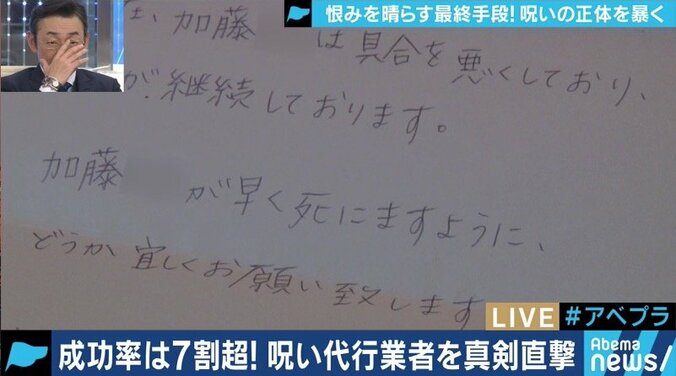 恨みを晴らす最終手段!呪いの正体を暴く
加藤 は具合を悪くしており、
が継続しております。
加藤
が早く死にますように、
どうか宜しくお願い致します
LIVE #アベプラ
成功率は7割超!呪い代行業者を真剣直撃
Abema news/